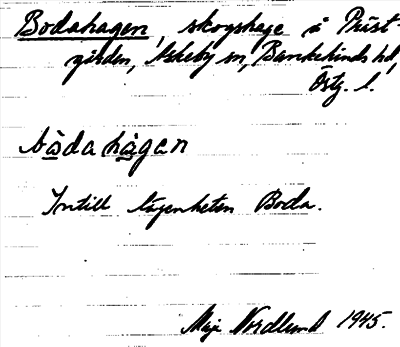 Bodahagen, skogshage i Präst-
gården, Askeby sn, Bankekinds hd,
Östg. l.
bòdahàgen
Intill lägenheten Boda.
Maja Nordlund 1945.